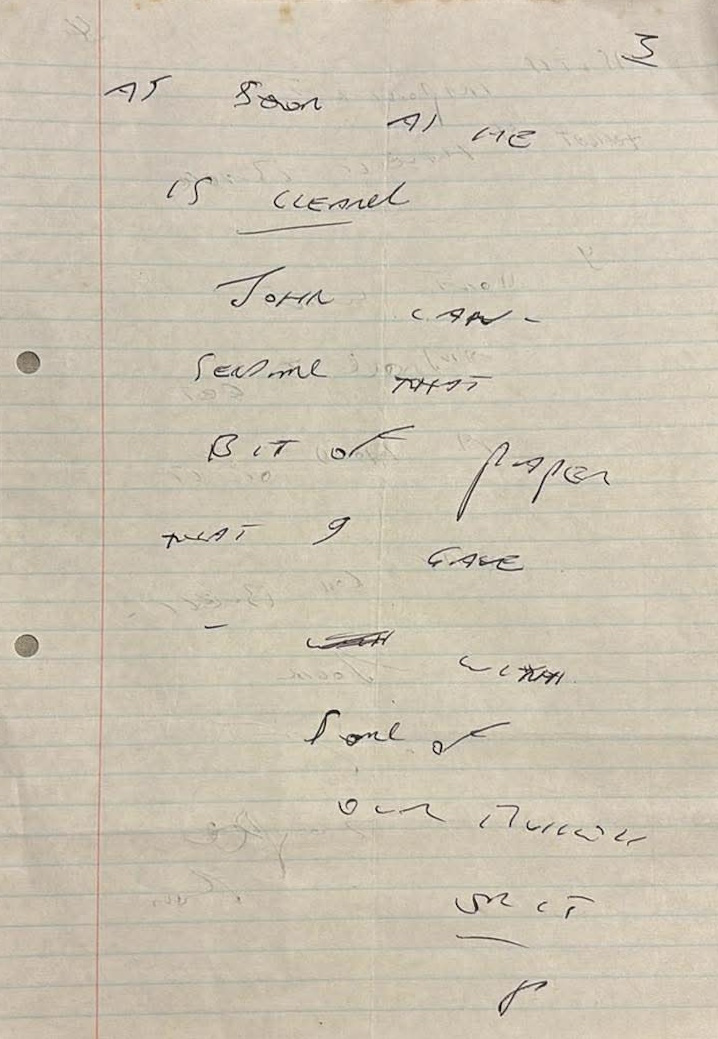 3
AS Soon AS HE
IS CLEARED
JOHN CAN
SEND ME THAT
BIT OF PAPER
THAT I GAVE
WITH
SOME OF
OUR
ON IT
P